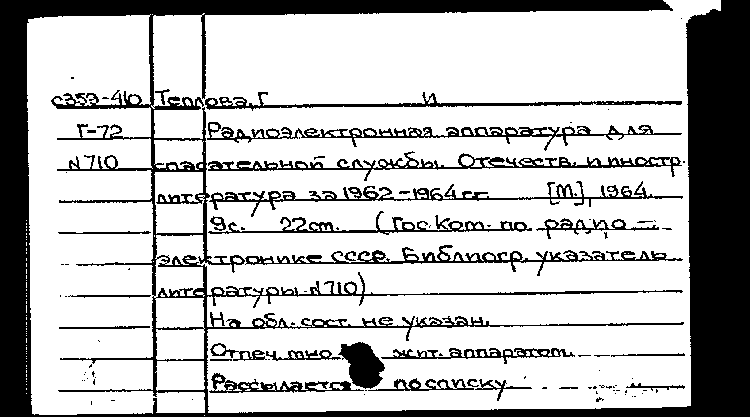 с359-410 Теплова, Г И
Г-72 Радиоэлектронная аппаратура для
N710 спасательной службы. Отечеств. и иностр.
литература за 1962-1964 гг. [М.], 1964.
9с. 22ст. (Гос. Ком. по радио-
электронике СССР. Библиогр. указатель
литературы N710)
На обл. сост. не указан.
Отпеч. мно жит. аппаратом.
Рассылается по списку.